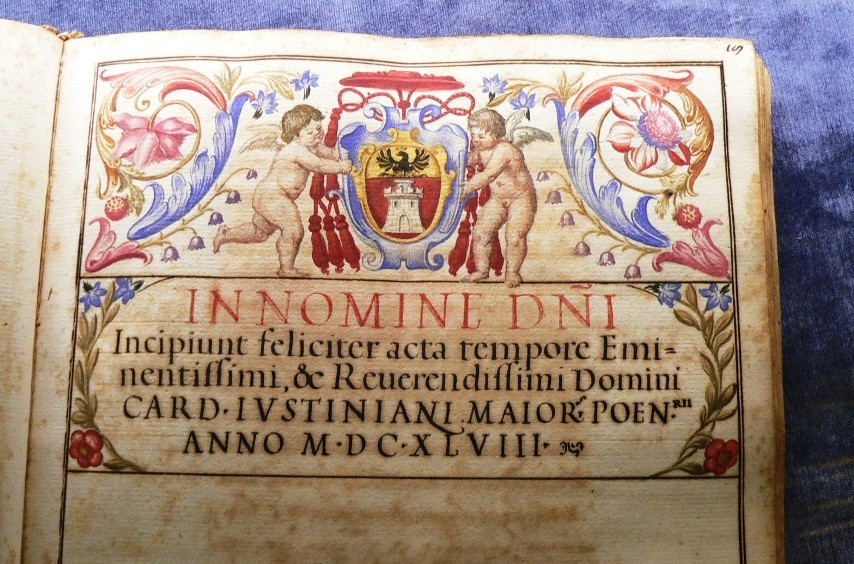 IN NOMINE DÑI
Incipiunt feliciter acta tempore Emi=
nentissimi, & Reuerendissimi Domini
CARD·IVSTINIANI MAIOR.ˢ POEN·ᴿᴵᴵ
ANNO M·D C·X L V I I I·